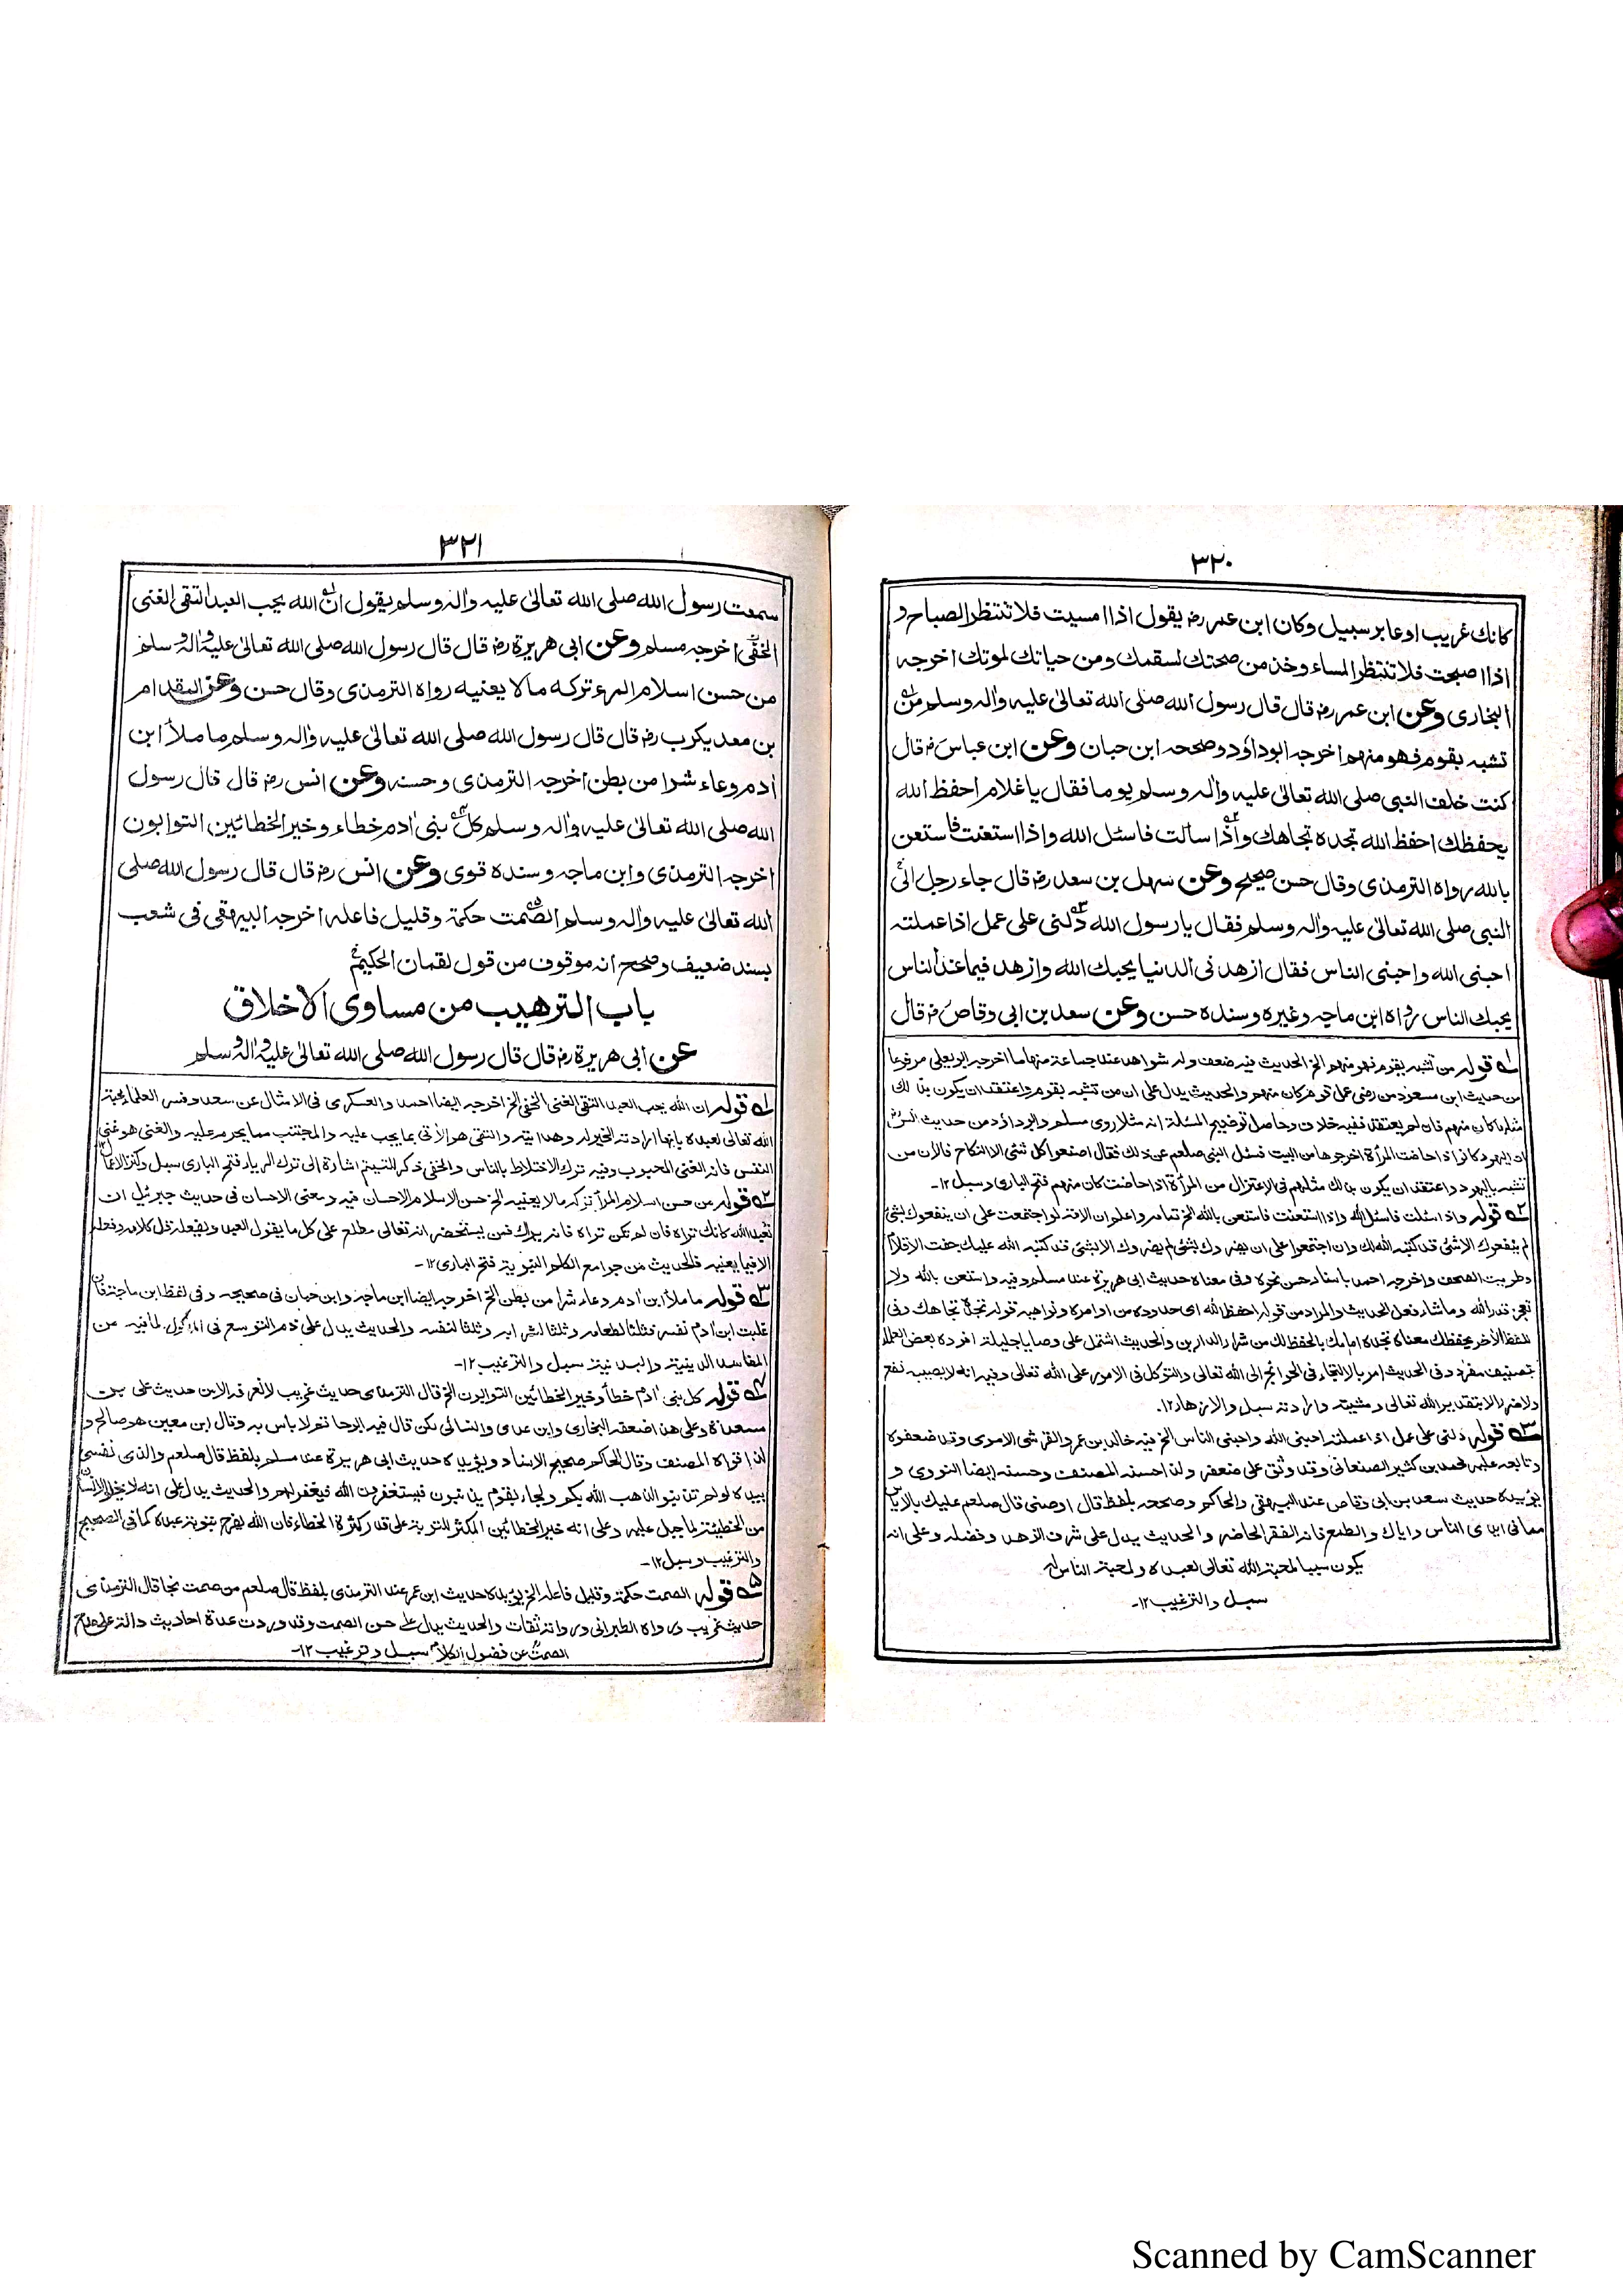 ٣٢٠
كانك غريب او عابر سبيل وكان ابن عمر رض يقول اذا امسيت فلا تنتظر الصباح و
اذا اصبحت فلا تنتظر المساء وخذ من صحتك لسقمك ومن حياتك لموتك اخرجه
البخارى وعن ابن عمر رض قال قال رسول الله صلى الله تعالى عليه واله وسلم من
تشبه بقوم فهو منهم اخرجه ابوداؤد وصححه ابن حبان وعن ابن عباس رض قال
كنت خلف النبى صلى الله تعالى عليه واله وسلم يوما فقال يا غلام احفظ الله
يحفظك احفظ الله تجده تجاهك واذا سألت فاسئل الله واذا استعنت فاستعن
بالله رواه الترمذى وقال حسن صحيح وعن سهل بن سعد رض قال جاء رجل الى
النبى صلى الله تعالى عليه واله وسلم فقال يا رسول الله دلنى على عمل اذا عملته
احبنى الله واحبنى الناس فقال ازهد فى الدنيا يحبك الله وازهد فيما عند الناس
يحبك الناس رواه ابن ماجه وغيره وسنده حسن وعن سعد بن ابى وقاص رض قال
له قوله من تشبه بقوم فهو منهم الخ الحديث فيه ضعف وله شواهد عند جماعة منها ما اخرجه ابويعلى مرفوعا
من حديث ابن مسعود من رضى عمل قوم كان منهم والحديث يدل على ان من تشبه بقوم واعتقد ان يكون بذلك
مثلهم كان منهم فان لم يعتقد ففيه خلاف وحاصل توضيح المسئلة انه مثلا روى مسلم وابوداؤد من حديث انس رض
ان اليهود كانوا اذا حاضت المرأة اخرجوها من البيت فسئل النبى صلعم عن ذلك فقال اصنعوا كل شئى الا النكاح فالأن من
تشبه باليهود واعتقد ان يكون بذلك مثلهم فى الاعتزال من المرأة اذا حاضت كان منهم فتح البارى وسبل ١٢-
٢ه قوله واذا سئلت فاسئل الله واذا استعنت فاستعن بالله الخ تمامه واعلم ان الامة لو اجتمعت على ان ينفعوك بشئ
لم ينفعوك الا بشئى قد كتبه الله لك وان اجتمعوا على ان يضروك بشئى لم يضروك الا بشئى قد كتبه الله عليك جفت الاقلام
وطويت الصحف واخرجه احمد باسناد حسن نحوه وفى معناه حديث ابى هريرة عند مسلم وفيه واستعن بالله ولا
تعجز قدر الله وما شاء فعل الحديث والمراد من قوله احفظ الله اى حدوده من اوامره ونواهيه قوله تجده تجاهك وفى
اللفظ الأخر يحفظك معناه تجده امامك بالحفظ لك من شرار الدارين والحديث اشتمل على وصايا جليلة افرده بعض العلماء
بتصنيف مفرد وفى الحديث امر بالالتجاء فى الحوائج الى الله تعالى والتوكل فى الامور على الله تعالى وفيه انه لا يصيبه نفع
ولا ضر الا بتقدير الله تعالى ومشيته وارادته سبل والازهار ١٢.
٣ه قوله دلنى على عمل اذا عملته احبنى الله واحبنى الناس الخ فيه خالد بن عمرو القرشى الاموى وقد ضعفوه
وتابعه عليه محمد بن كثير الصنعانى وقد وثق على ضعفه ولذا حسنه المصنف وحسنه ايضا النووى و
يؤيده حديث سعد بن ابى وقاص عند البيهقى والحاكم وصححه بلفظ قال اوصنى قال صلعم عليك بالاياس
مما فى ايدى الناس واياك والطمع فانه الفقر الحاضر والحديث يدل على شرف الزهد وفضله وعلى انه
يكون سببا لمحبة الله تعالى لعبده ولمحبة الناس له
سبل والترغيب ١٢-
٣٢١
سمعت رسول الله صلى الله تعالى عليه واله وسلم يقول ان الله يحب العبد التقى الغنى
الخفى اخرجه مسلم وعن ابى هريرة رض قال قال رسول الله صلى الله تعالى عليه واله وسلم
من حسن اسلام المرء تركه مالا يعنيه رواه الترمذى وقال حسن وعن المقدام
بن معديكرب رض قال قال رسول الله صلى الله تعالى عليه واله وسلم ما ملأ ابن
ادم وعاء شرا من بطن اخرجه الترمذى وحسنه وعن انس رض قال قال رسول
الله صلى الله تعالى عليه واله وسلم كل بنى ادم خطاء وخير الخطائين التوابون
اخرجه الترمذى وابن ماجه وسنده قوى وعن انس رض قال قال رسول الله صلى
الله تعالى عليه واله وسلم الصمت حكمة وقليل فاعله اخرجه البيهقى فى شعب
بسند ضعيف وصحح انه موقوف من قول لقمان الحكيم
باب الترهيب من مساوى الاخلاق
عن ابى هريرة رض قال قال رسول الله صلى الله تعالى عليه واله وسلم
له قوله ان الله يحب العبد التقى الغنى الخفى الخ اخرجه ايضا احمد والعسكرى فى الامثال عن سعد وفسر العلماء محبة
الله تعالى لعبده بانها ارادته الخير له وهدايته والتقى هو الأتى بما يجب عليه والمجتنب مما يحرم عليه والغنى هو غنى
النفس فانه الغنى المحبوب وفيه ترك الاختلاط بالناس والخفى ذكره للتتيم اشارة الى ترك الرياء فتح البارى سبل
٢ه قوله من حسن اسلام المرأ تركه مالا يعنيه الخ حسن الاسلام الاحسان فيه ومعنى الاحسان فى حديث جبرئيل ان
تعبد الله كانك تراه فان لم تكن تراه فانه يراك فمن يستحضر انه تعالى مطلع على كل ما يقول العبد ويفعله قل كلامه وفعله
الا فيما يعنيه فالحديث من جوامع الكلم النبوية فتح البارى ١٢-
٣ه قوله ما ملأ ابن ادم وعاء شرا من بطن الخ اخرجه ايضا ابن ماجه وابن حبان فى صحيحه وفى لفظ ابن ماجة فان
غلبت ابن ادم نفسه فثلثا لطعامه وثلثا لشرابه وثلثا لنفسه والحديث يدل على ذم التوسع فى الماكول لما فيه من
المفاسد الدينية والبدنية سبل والترغيب ١٢-
٤ه قوله كل بنى ادم خطأ وخير الخطائين التوابون الخ قال الترمذى حديث غريب لا نعرفه الا من حديث على بن
مسعدة وعلى هذا ضعفه البخارى وابن عدى والنسائى لكن قال فيه ابوحاتم لا باس به وقال ابن معين هو صالح و
لذا قواه المصنف وقال الحاكم صحيح الاسناد ويؤيده حديث ابى هريرة عند مسلم بلفظ قال صلعم والذى نفسى
بيده لو لم تذنبوا لذهب الله بكم ولجاء بقوم يذنبون فيستغفرون الله فيغفر لهم والحديث يدل على انه لا يخلو الانسان
من الخطيئة لما جبل عليه وعلى انه خير الخطائين المكثر للتوبة على قدر كثرة الخطاء فان الله يفرح بتوبة عبده كما فى الصحيح
والترغيب وسبل ١٢-
٥ه قوله الصمت حكمة وقليل فاعله الخ يؤيده حديث ابن عمر عند الترمذى بلفظ قال صلعم من صمت نجا قال الترمذى
حديث غريب ورواه الطبرانى ورواته ثقات والحديث يدل على حسن الصمت وقد وردت عدة احاديث دالة على مدح
الصمت عن فضول الكلام سبل وترغيب ١٢-
Scanned by CamScanner